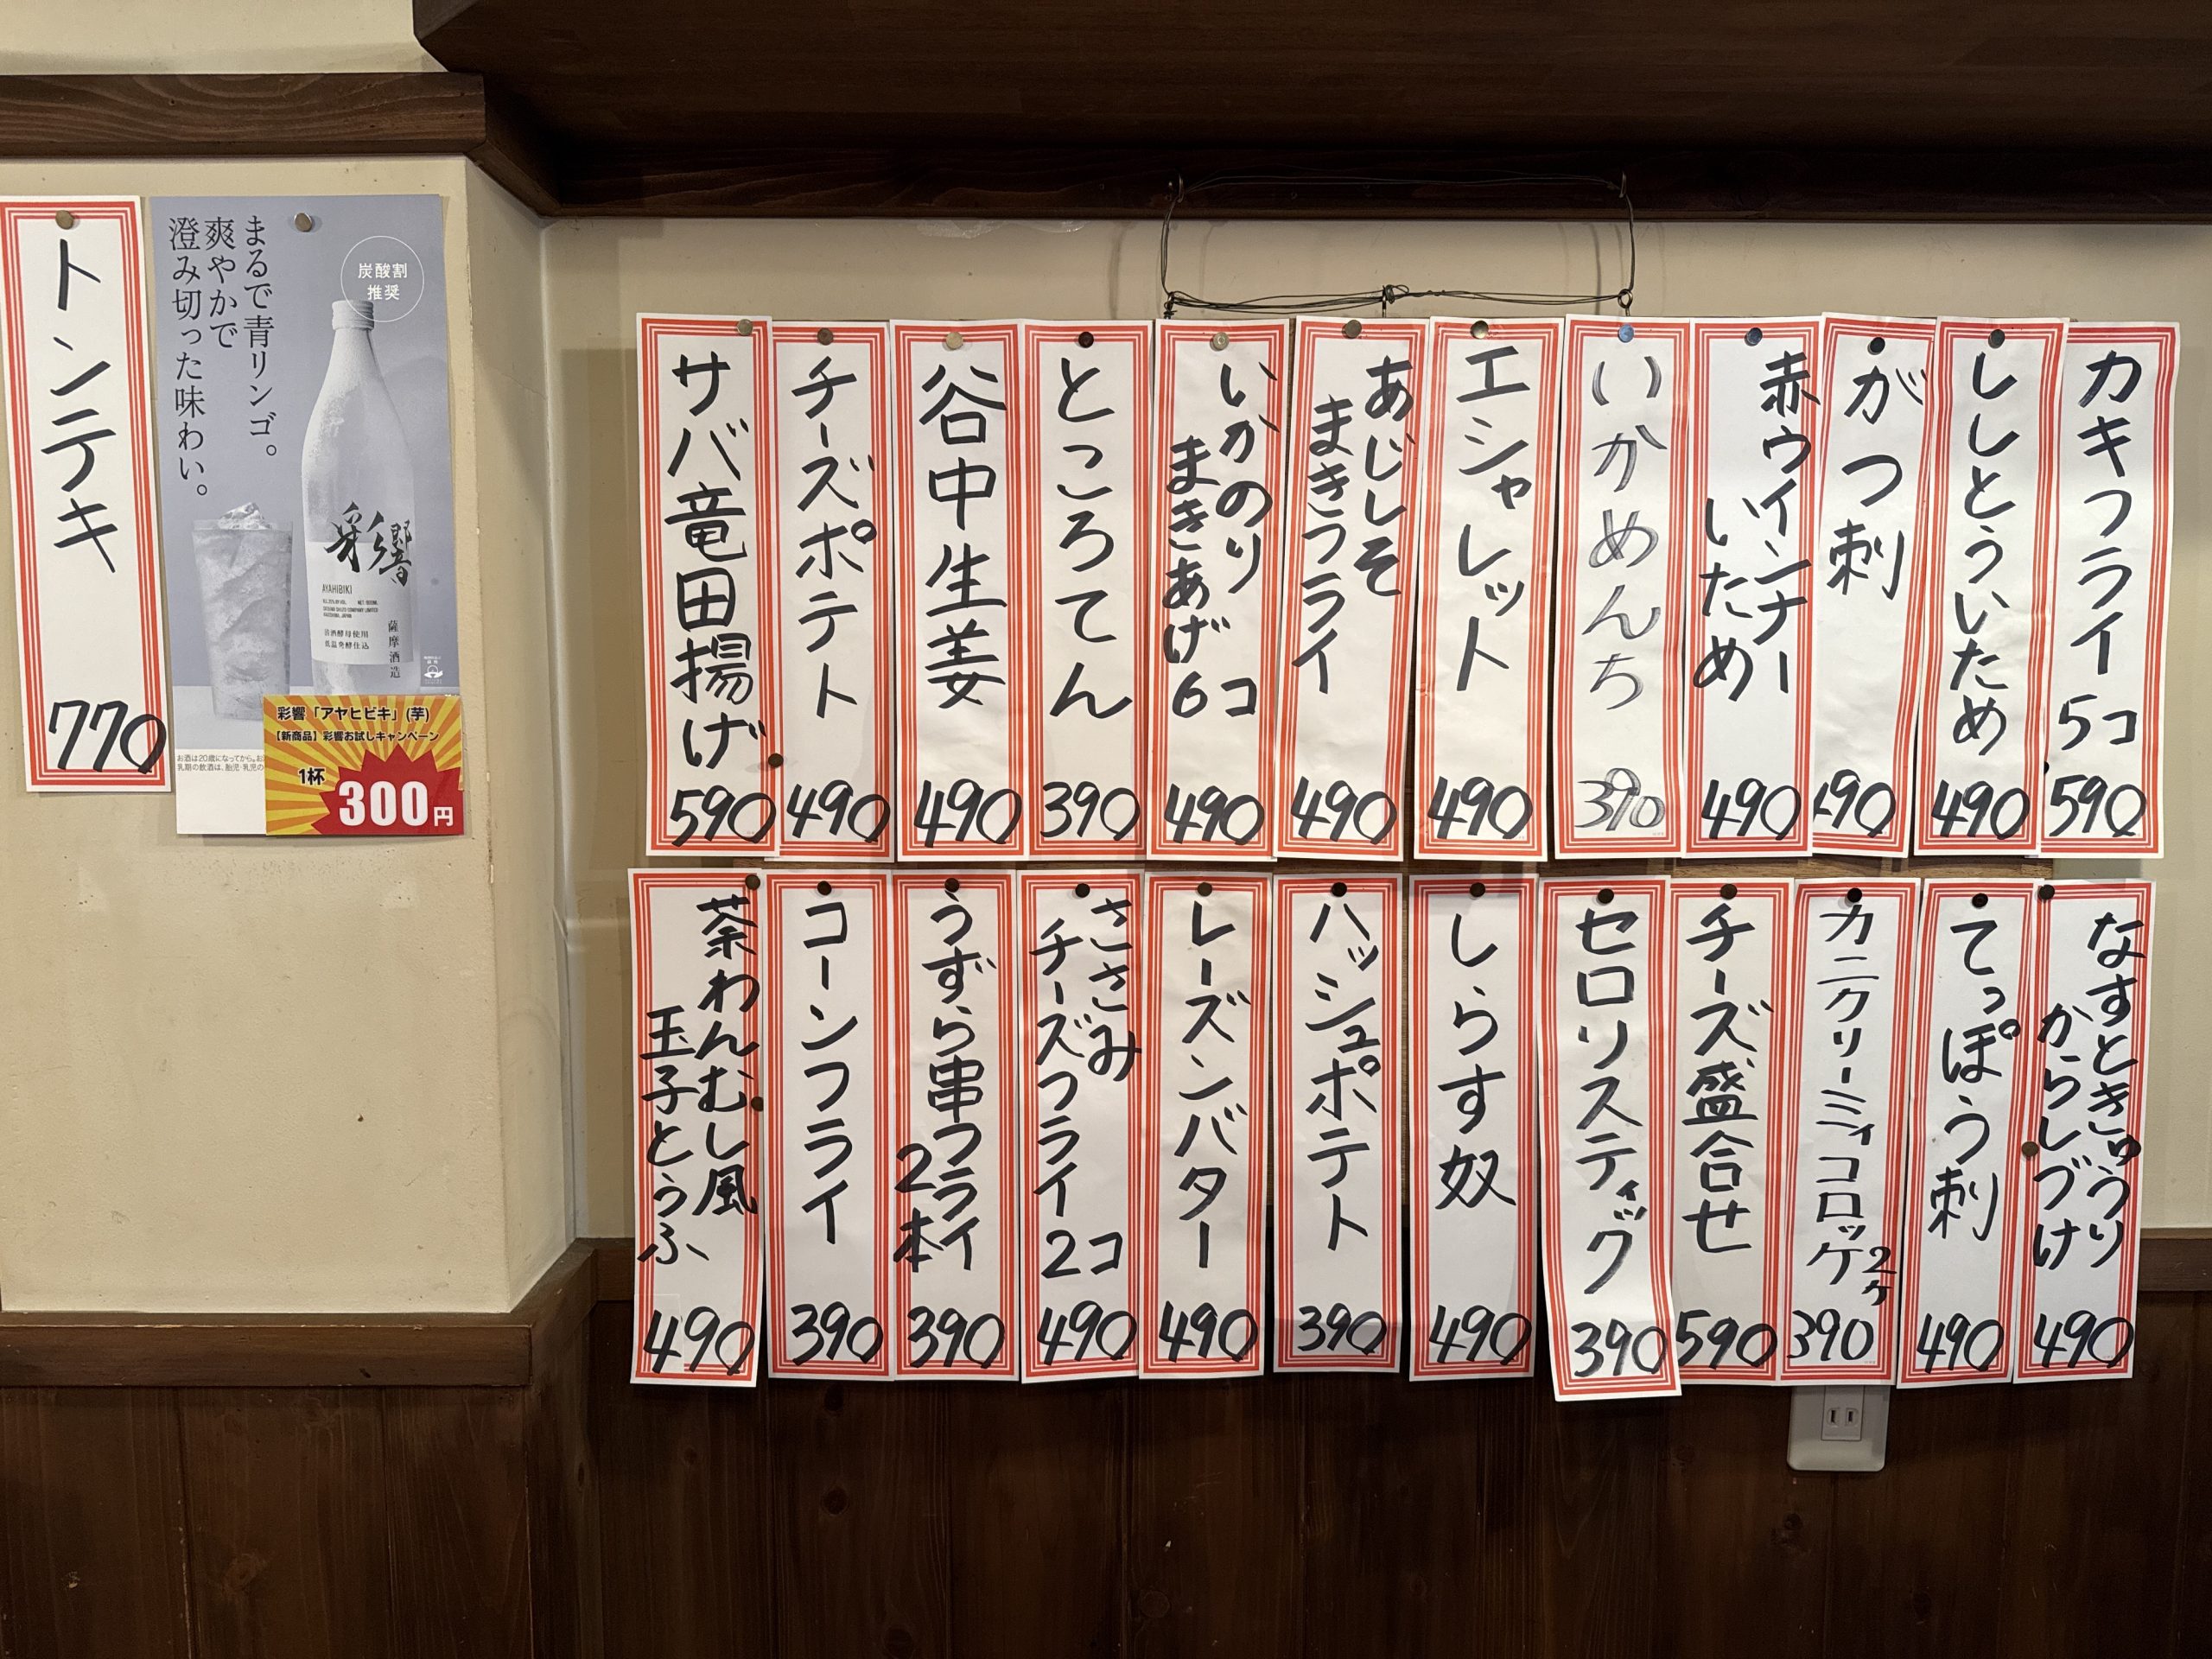 トンテキ
770
まるで青リンゴ。
爽やかで
澄み切った味わい。
炭酸割
推奨
彩響
AYAHIBIKI
薩摩酒造
彩響「アヤヒビキ」(芋)
【新商品】彩響お試しキャンペーン
1杯
300円
カキフライ
5コ
590
ししとういため
490
がつ刺
490
赤ウインナー
いため
490
いかめんち
390
エシャレット
490
あじしそ
まきフライ
490
いかのり
まきあげ
6コ
490
ところてん
390
谷中生姜
490
チーズポテト
490
サバ竜田揚げ
590
なすときゅうり
からしづけ
490
てっぽう刺
490
カニクリーミィコロッケ
2ヶ
390
チーズ盛合せ
590
セロリスティック
390
しらす奴
490
ハッシュポテト
390
レーズンバター
490
ささみ
チーズフライ
2コ
490
うずら串フライ
2本
390
コーンフライ
390
茶わんむし風
玉子とうふ
490